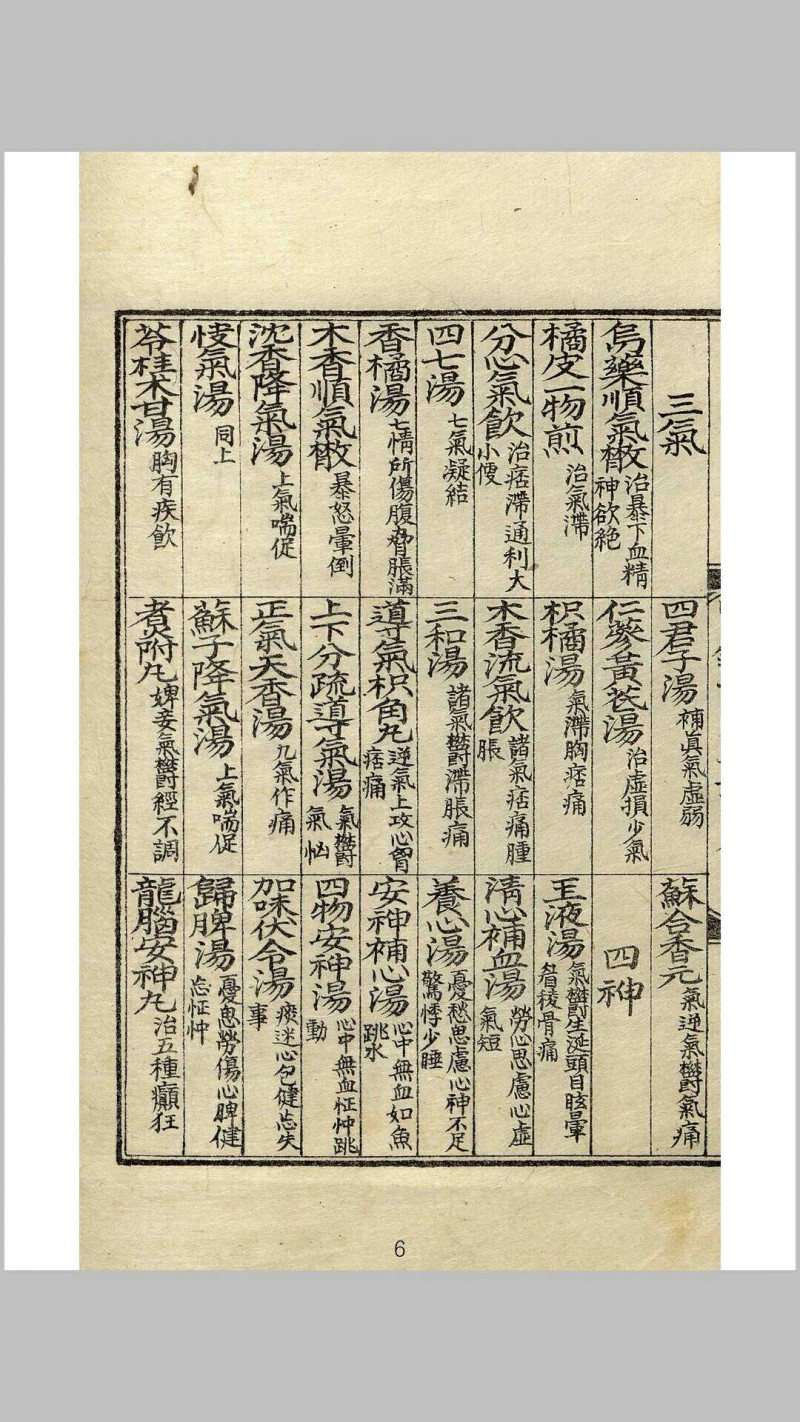 三氣
烏藥順氣散 治暴下血精神欲絶
橘皮一物煎 治氣滯
分心氣飮 治痞滯通利大小便
四七湯 七氣凝結
香橘湯 七情所傷腹脅脹滿
木香順氣散 暴怒暈倒
沈香降氣湯 上氣喘促
快氣湯 同上
苓桂朮甘湯 胸有疾飮
四君子湯 補眞氣虛弱
仁蔘黃芪湯 治虛損少氣
枳橘湯 氣滯胸痞痛
木香流氣飮 諸氣痞痛腫脹
三和湯 諸氣欎滯脹痛
導氣枳角丸 逆氣上攻心胷痞痛
上下分疏導氣湯 氣欎氣
正氣天香湯 九氣作痛
蘇子降氣湯 上氣喘促
煮附丸 婢妾氣欎經不調
蘇合香元 氣逆氣欎氣痛
四神
玉液湯 氣欎生涎頭目眩暈眉稜骨痛
淸心補血湯 勞心思慮心虛氣短
養心湯 憂愁思慮心神不足驚悸少睡
安神補心湯 心中無血如魚跳水
四物安神湯 心中無血怔忡跳動
加味伏令湯 痰迷心包健忘失事
歸脾湯 憂思勞傷心脾健忘怔忡
龍腦安神丸 治五種癲狂
6